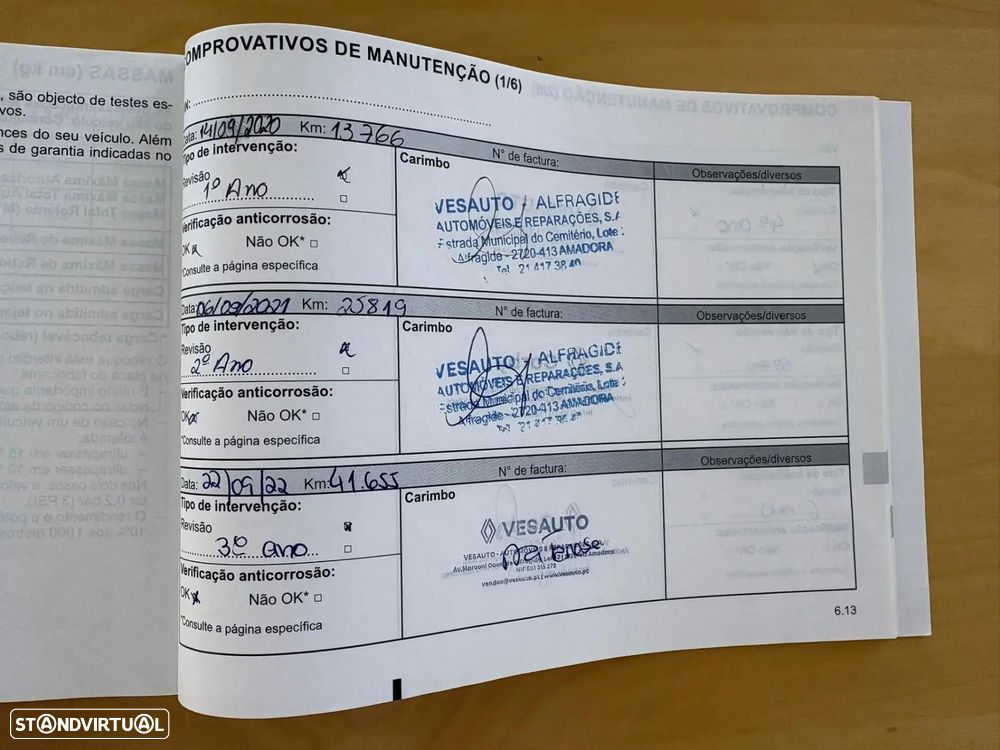 , são objecto de testes es-
vos.
nces do seu veículo. Além
s de garantia indicadas no
OMPROVATIVOS DE MANUTENÇÃO (1/6)
N:
Data: 14/09/2020 Km: 13766
N° de factura:
Observações/diversos
Tipo de intervenção:
Revisão
1º Ano
Verificação anticorrosão:
OK Não OK*
*Consulte a página específica
Carimbo
VESAUTO ALFRAGIDE
AUTOMÓVEIS E REPARAÇÕES, S.A
Estrada Municipal do Cemitério, Lote
Alfragide - 2720-413 AMADORA
Tel. 21 417 38 40
Data: 06/09/2021 Km: 25819
N° de factura:
Observações/diversos
Tipo de intervenção:
Revisão
2º Ano
Verificação anticorrosão:
OK Não OK*
*Consulte a página específica
Carimbo
VESAUTO ALFRAGIDE
AUTOMÓVEIS E REPARAÇÕES, S.A
Estrada Municipal do Cemitério, Lote
Alfragide - 2720-413 AMADORA
Data: 22/09/22 Km: 41.655
N° de factura:
Observações/diversos
Tipo de intervenção:
Revisão
3º ano
Verificação anticorrosão:
OK Não OK*
*Consulte a página específica
Carimbo
VESAUTO
vendas@vesauto.pt | www.vesauto.pt
6.13
STANDVIRTUAL